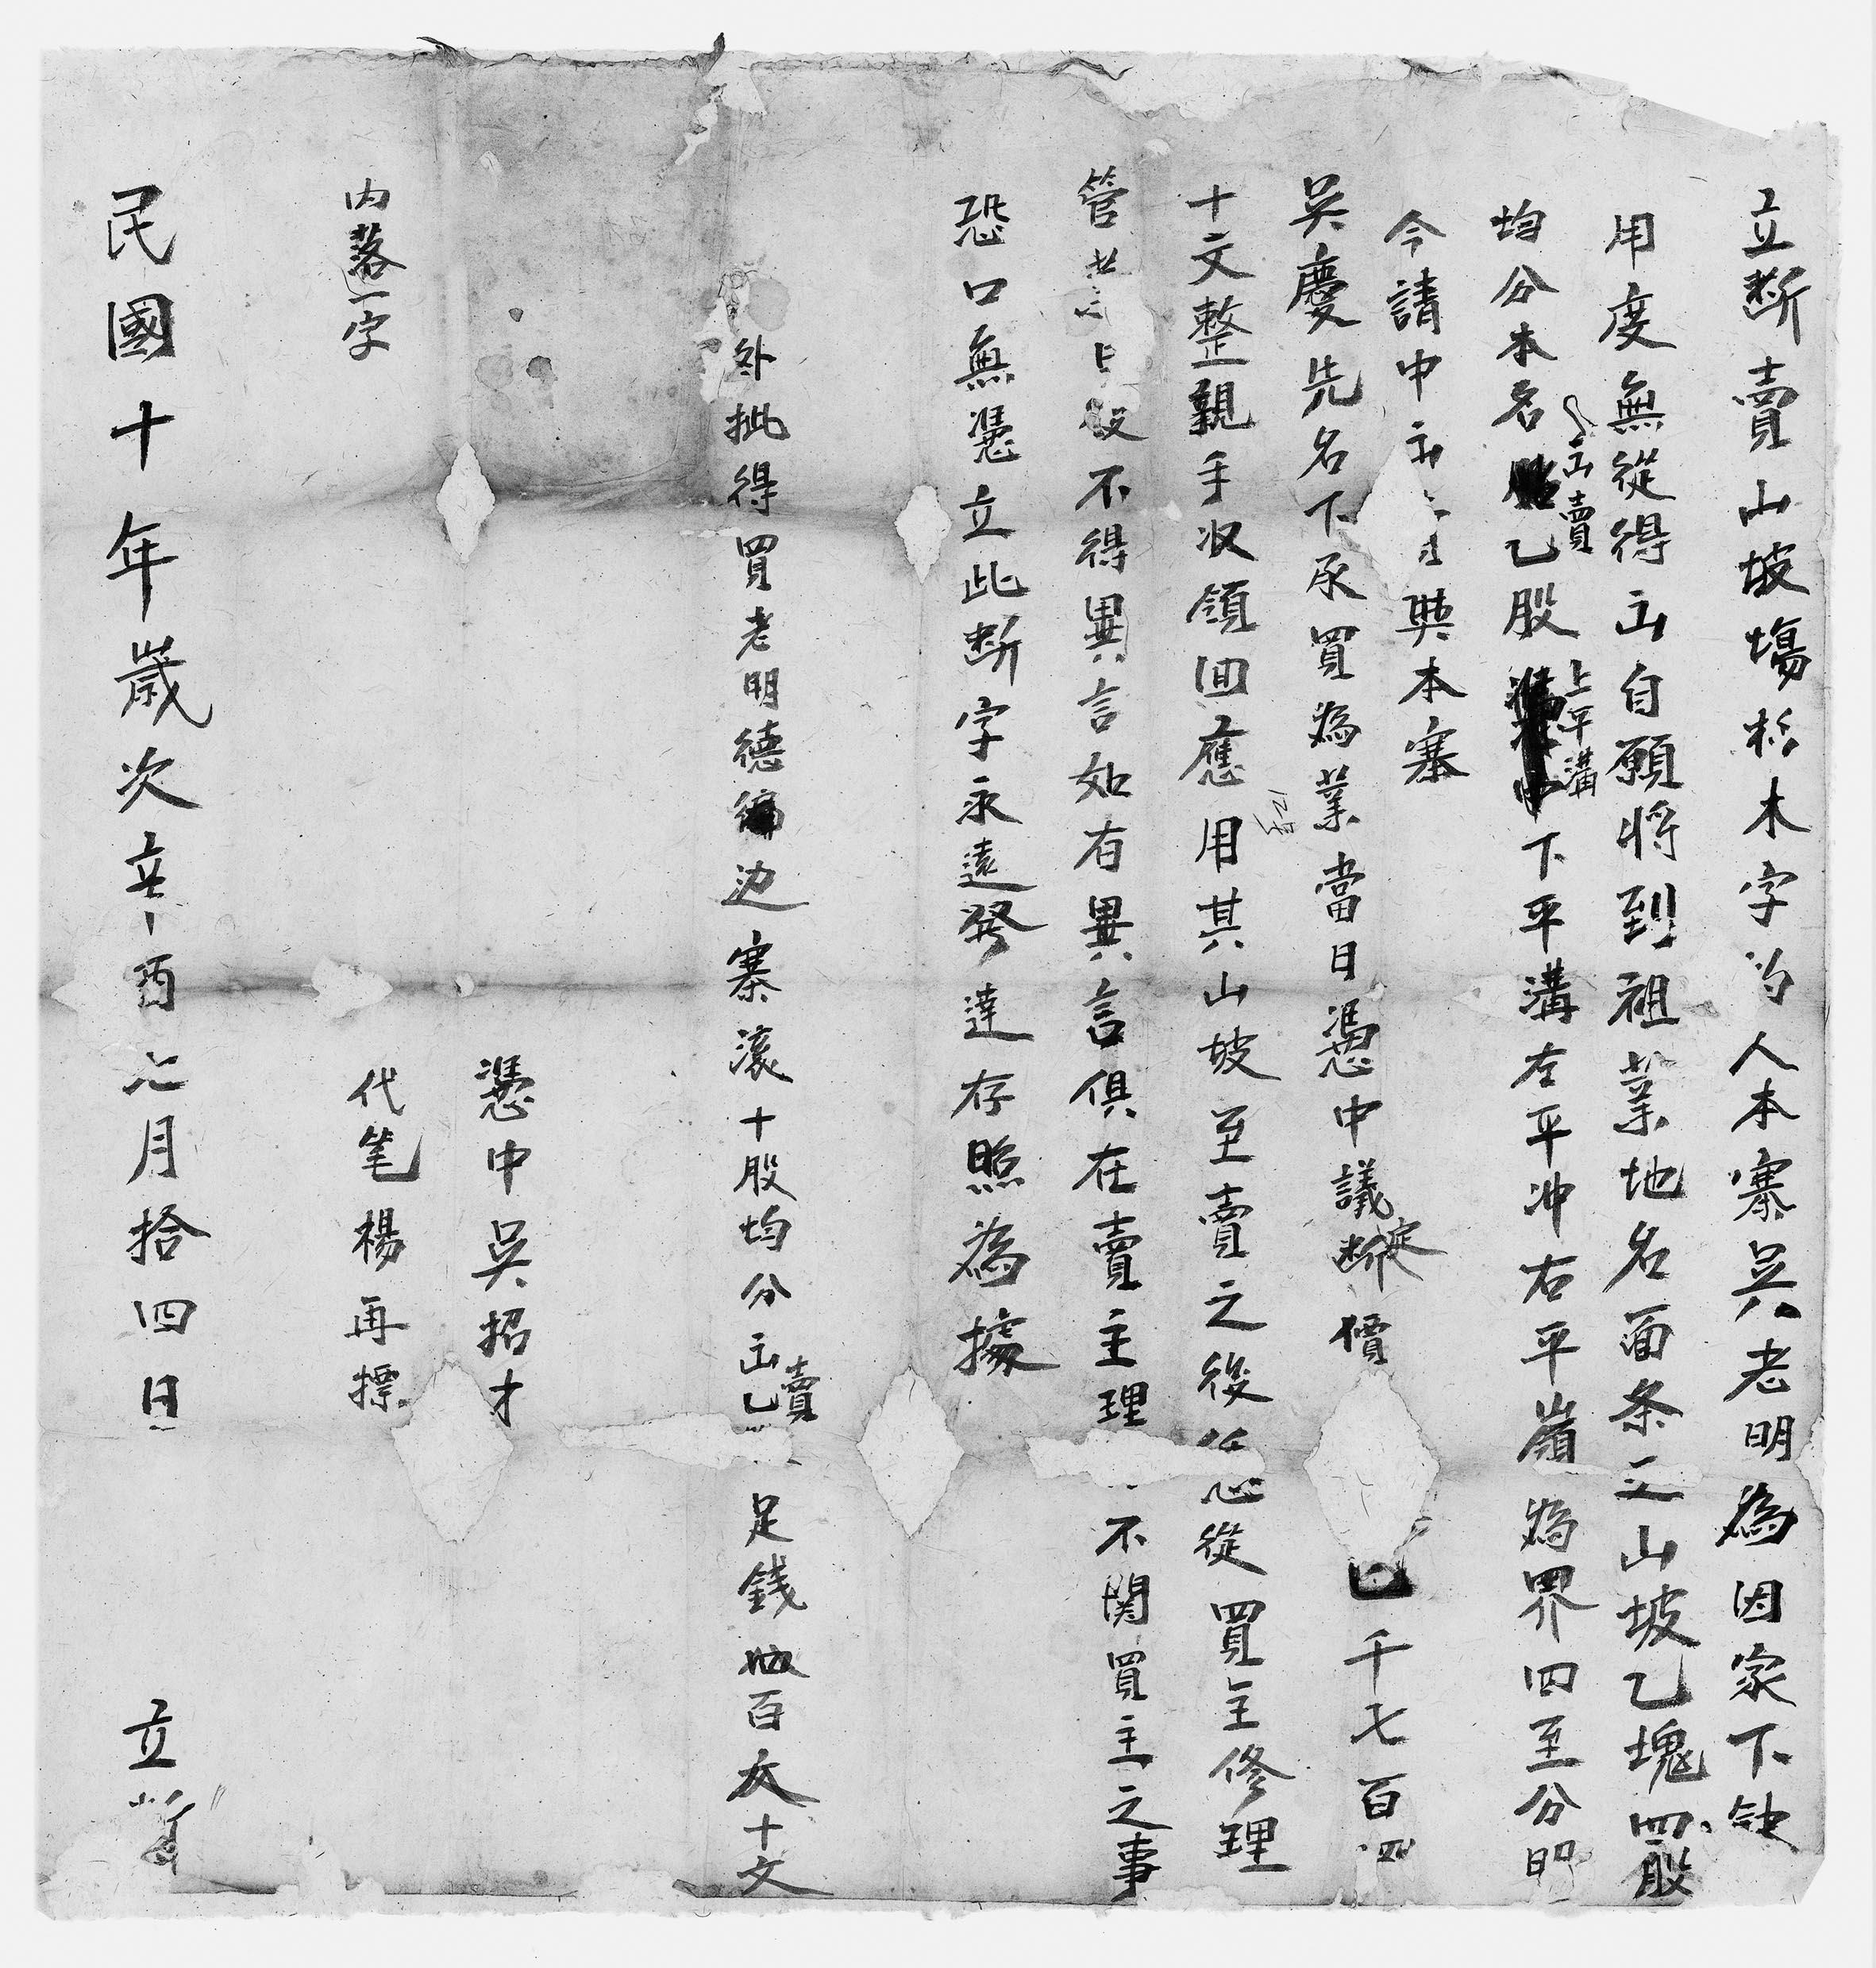 立断賣山坡塲杉木字約人本寨吳老明為因家下缺
用度無從得出自願將到祖業地名面条之山坡乙塊四股
均分本名出賣乙股上平溝下平溝左平冲右平嶺為界四至分明
今請中出與本寨
吳慶先名下承買為業當日憑中議定断價千七百四
十文整親手收領回應用其山坡至賣之後任從買主修理
管不得異言如有異言俱在賣主理不関買主之事
恐口無憑立此断字永遠發達存照為據
外批得買老明德边寨滚十股均分出賣乙足錢百十文
憑中吳招才
内落一字
代笔楊再標
民國十年歲次辛酉七月拾四日立